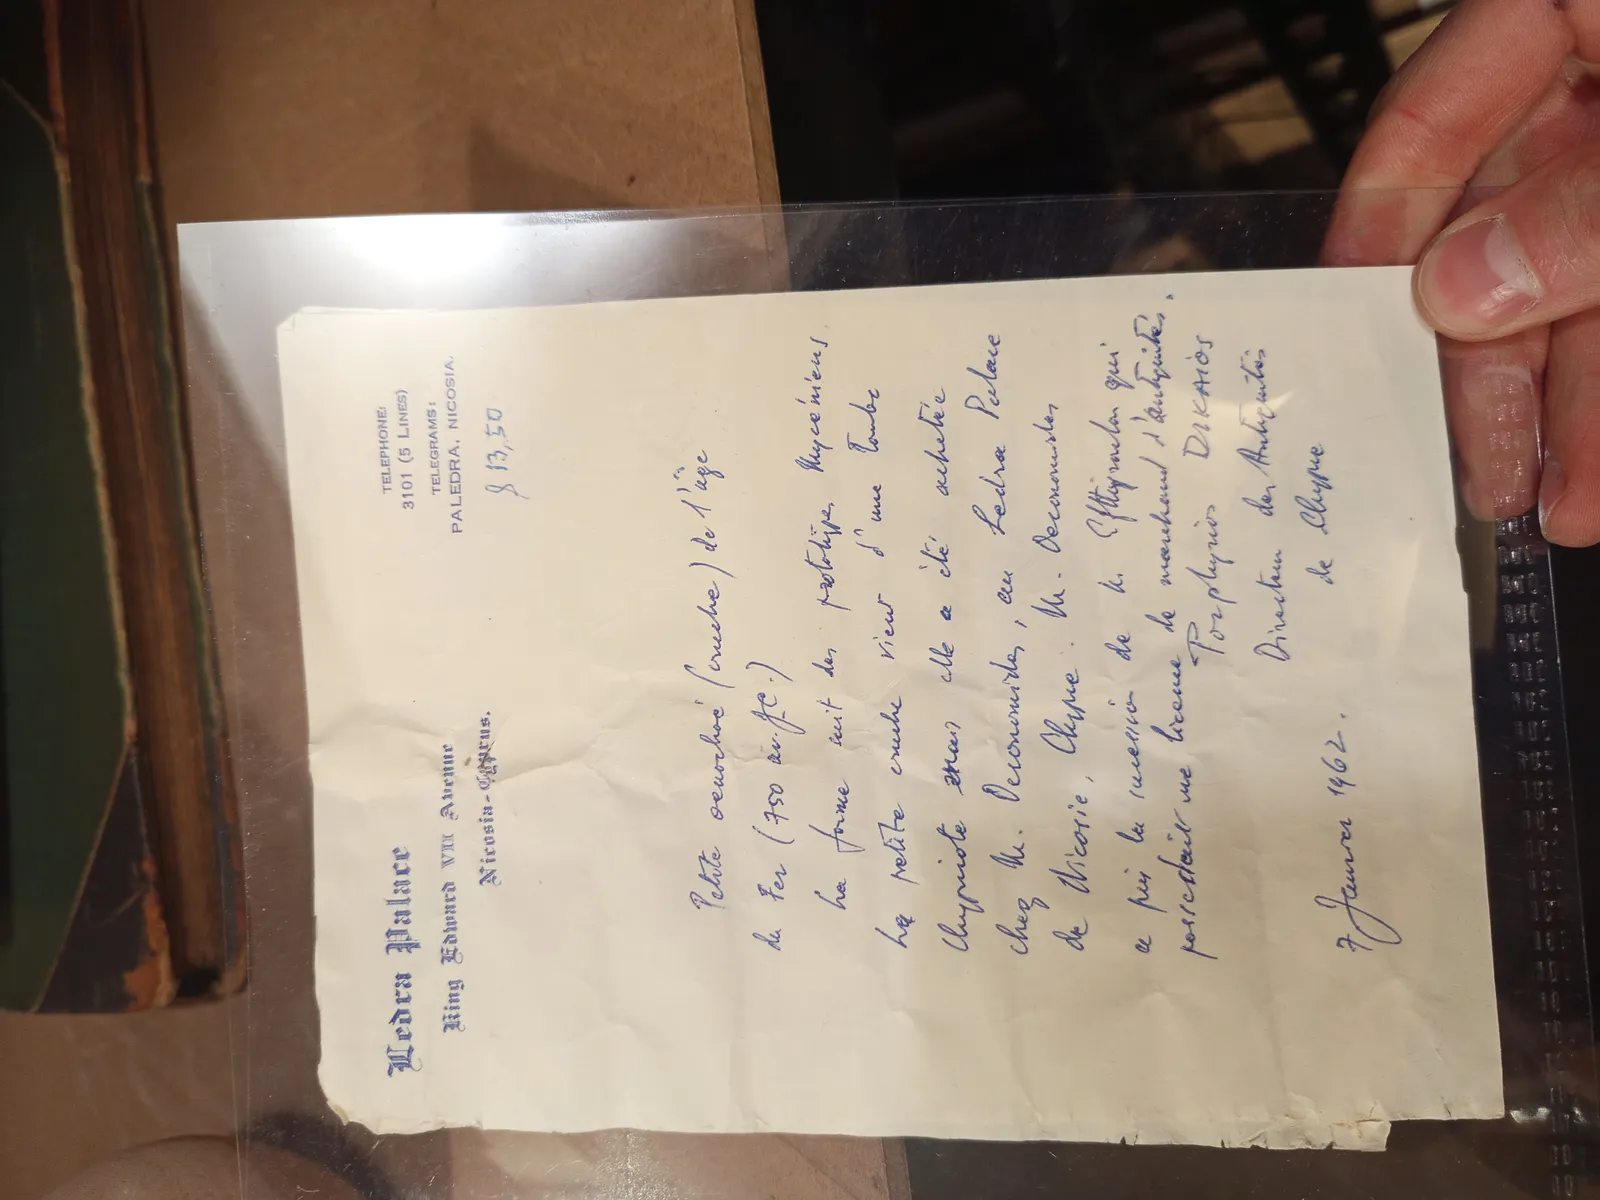 Ledra Palace
King Edward VII Avenue
Nicosia-Cyprus.
TELEPHONE:
3101 (5 LINES)
TELEGRAMS:
PALEDRA, NICOSIA.
$ 13,50
Petite oenochoé (cruche) de l'âge
du Fer (750 av. JC.)
La forme suit des prototypes Mycéniens.
La petite cruche vient d'une tombe
Chypriote mais elle a été achetée
chez M. Oeconomides, au Ledra Palace
de Nicosie, Chypre. M. Oeconomides
a pris la succession de M. qui
possédait une license de marchand d'antiquités.
Porphyrios DIKAIOS
Directeur des Antiquités
de Chypre
7 Janvier 1962.